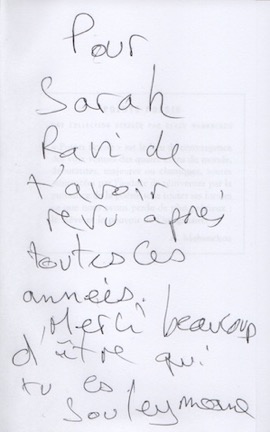 Pour
Sarah
Ravi de
t'avoir
revu après
toutes ces
années.
Merci beaucoup
d'être qui
tu es
Souleymane